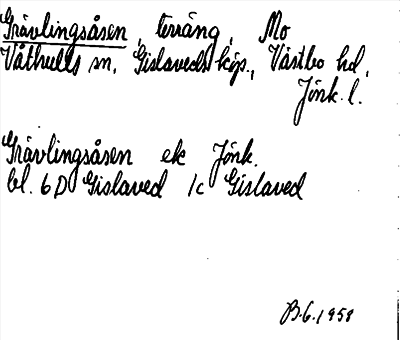 Grävlingsåsen, terräng, Mo
Våthults sn, Gislaveds köp., Västbo hd,
Jönk. l.
Grävlingsåsen ek Jönk.
bl. 6D Gislaved 1c Gislaved
B.G. 1958